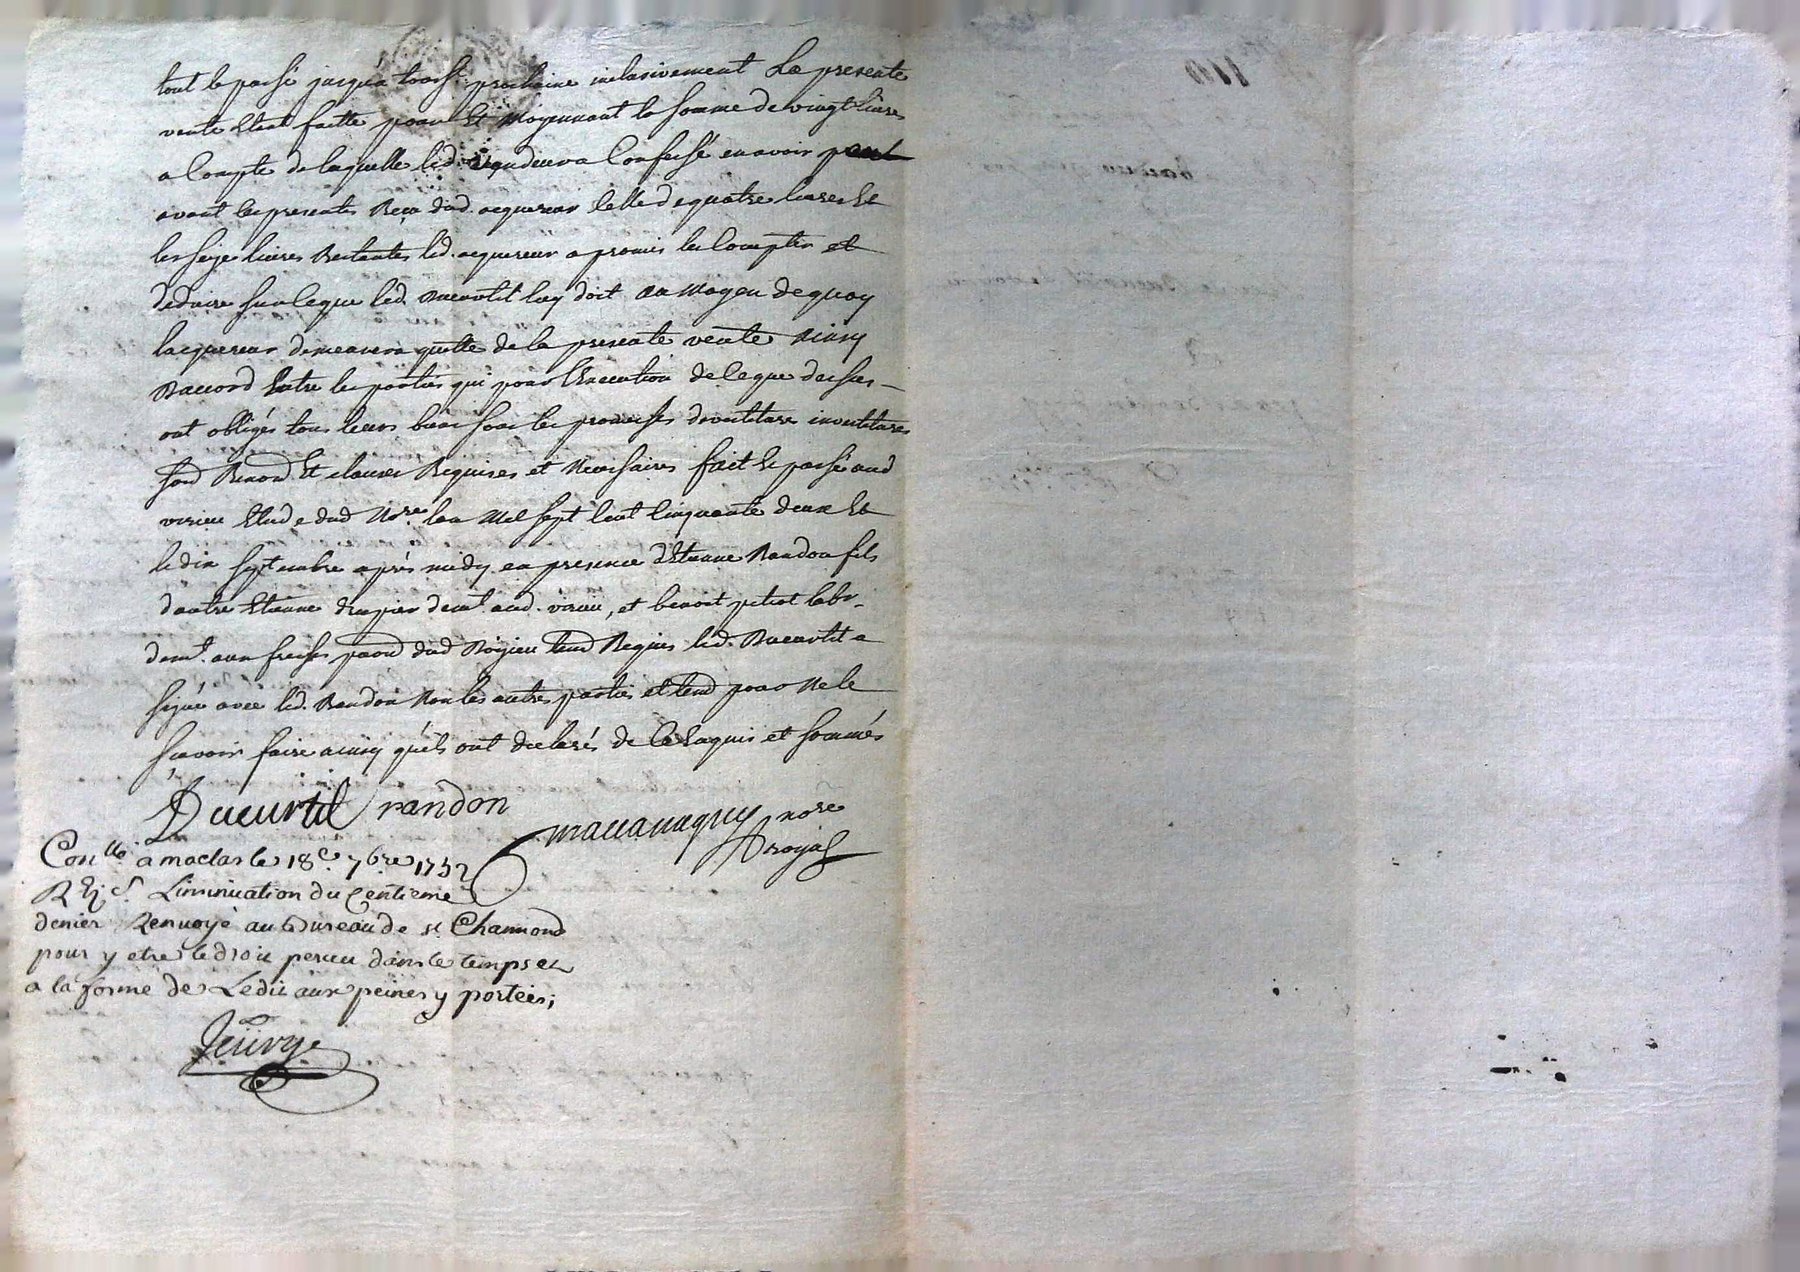 tout le passé jusqu'a touss.t prochaine inclusivement La presente
vente Etant faitte pour Et Moyennant la somme de vingt livres
a Compte de laquelle led. vendeur a Confessé en avoir
avant les presentes Reçu dud. acquereur Celle de quatre livres Et
les seize livres Restantes led. acquereur a promis les Compter et
deduire sur ce que led. Ducurtil luy doit au Moyen de quoy
lacquereur demeurera quitte de la presente vente Ainsy
D'accord Entre les parties qui pour l'Execution de Ce que dessus
ont obligés tous leurs biens sous les promesses
Et clauses Requises et Necessaires fait Et passé aud
virieu Etude dud No.re lan Mil sept Cent Cinquante deux Et
le dix septembre après midy en presence d'Etienne Randon fils
d'autre Etienne drapier dem.t aud. virieu, et benoit petiot labr.
dem.t aux freisses parr. dud Roizieu tem. Requis led. Ducurtil a
signé avec led. Randon Non les autres parties et tem. pour Ne le
sçavoir faire ainsy qu'ils ont declarés de Ce Enquis et sommés
Ducurtil randon
no.re
royal
Con.llé a maclas le 18.e 7bre 1752
Linsinuation du Centieme
denier Renvoyé au Bureau de st Chamond
pour y etre le droit perceu dans le temps et
a la forme de Ledit aux peines y portées;